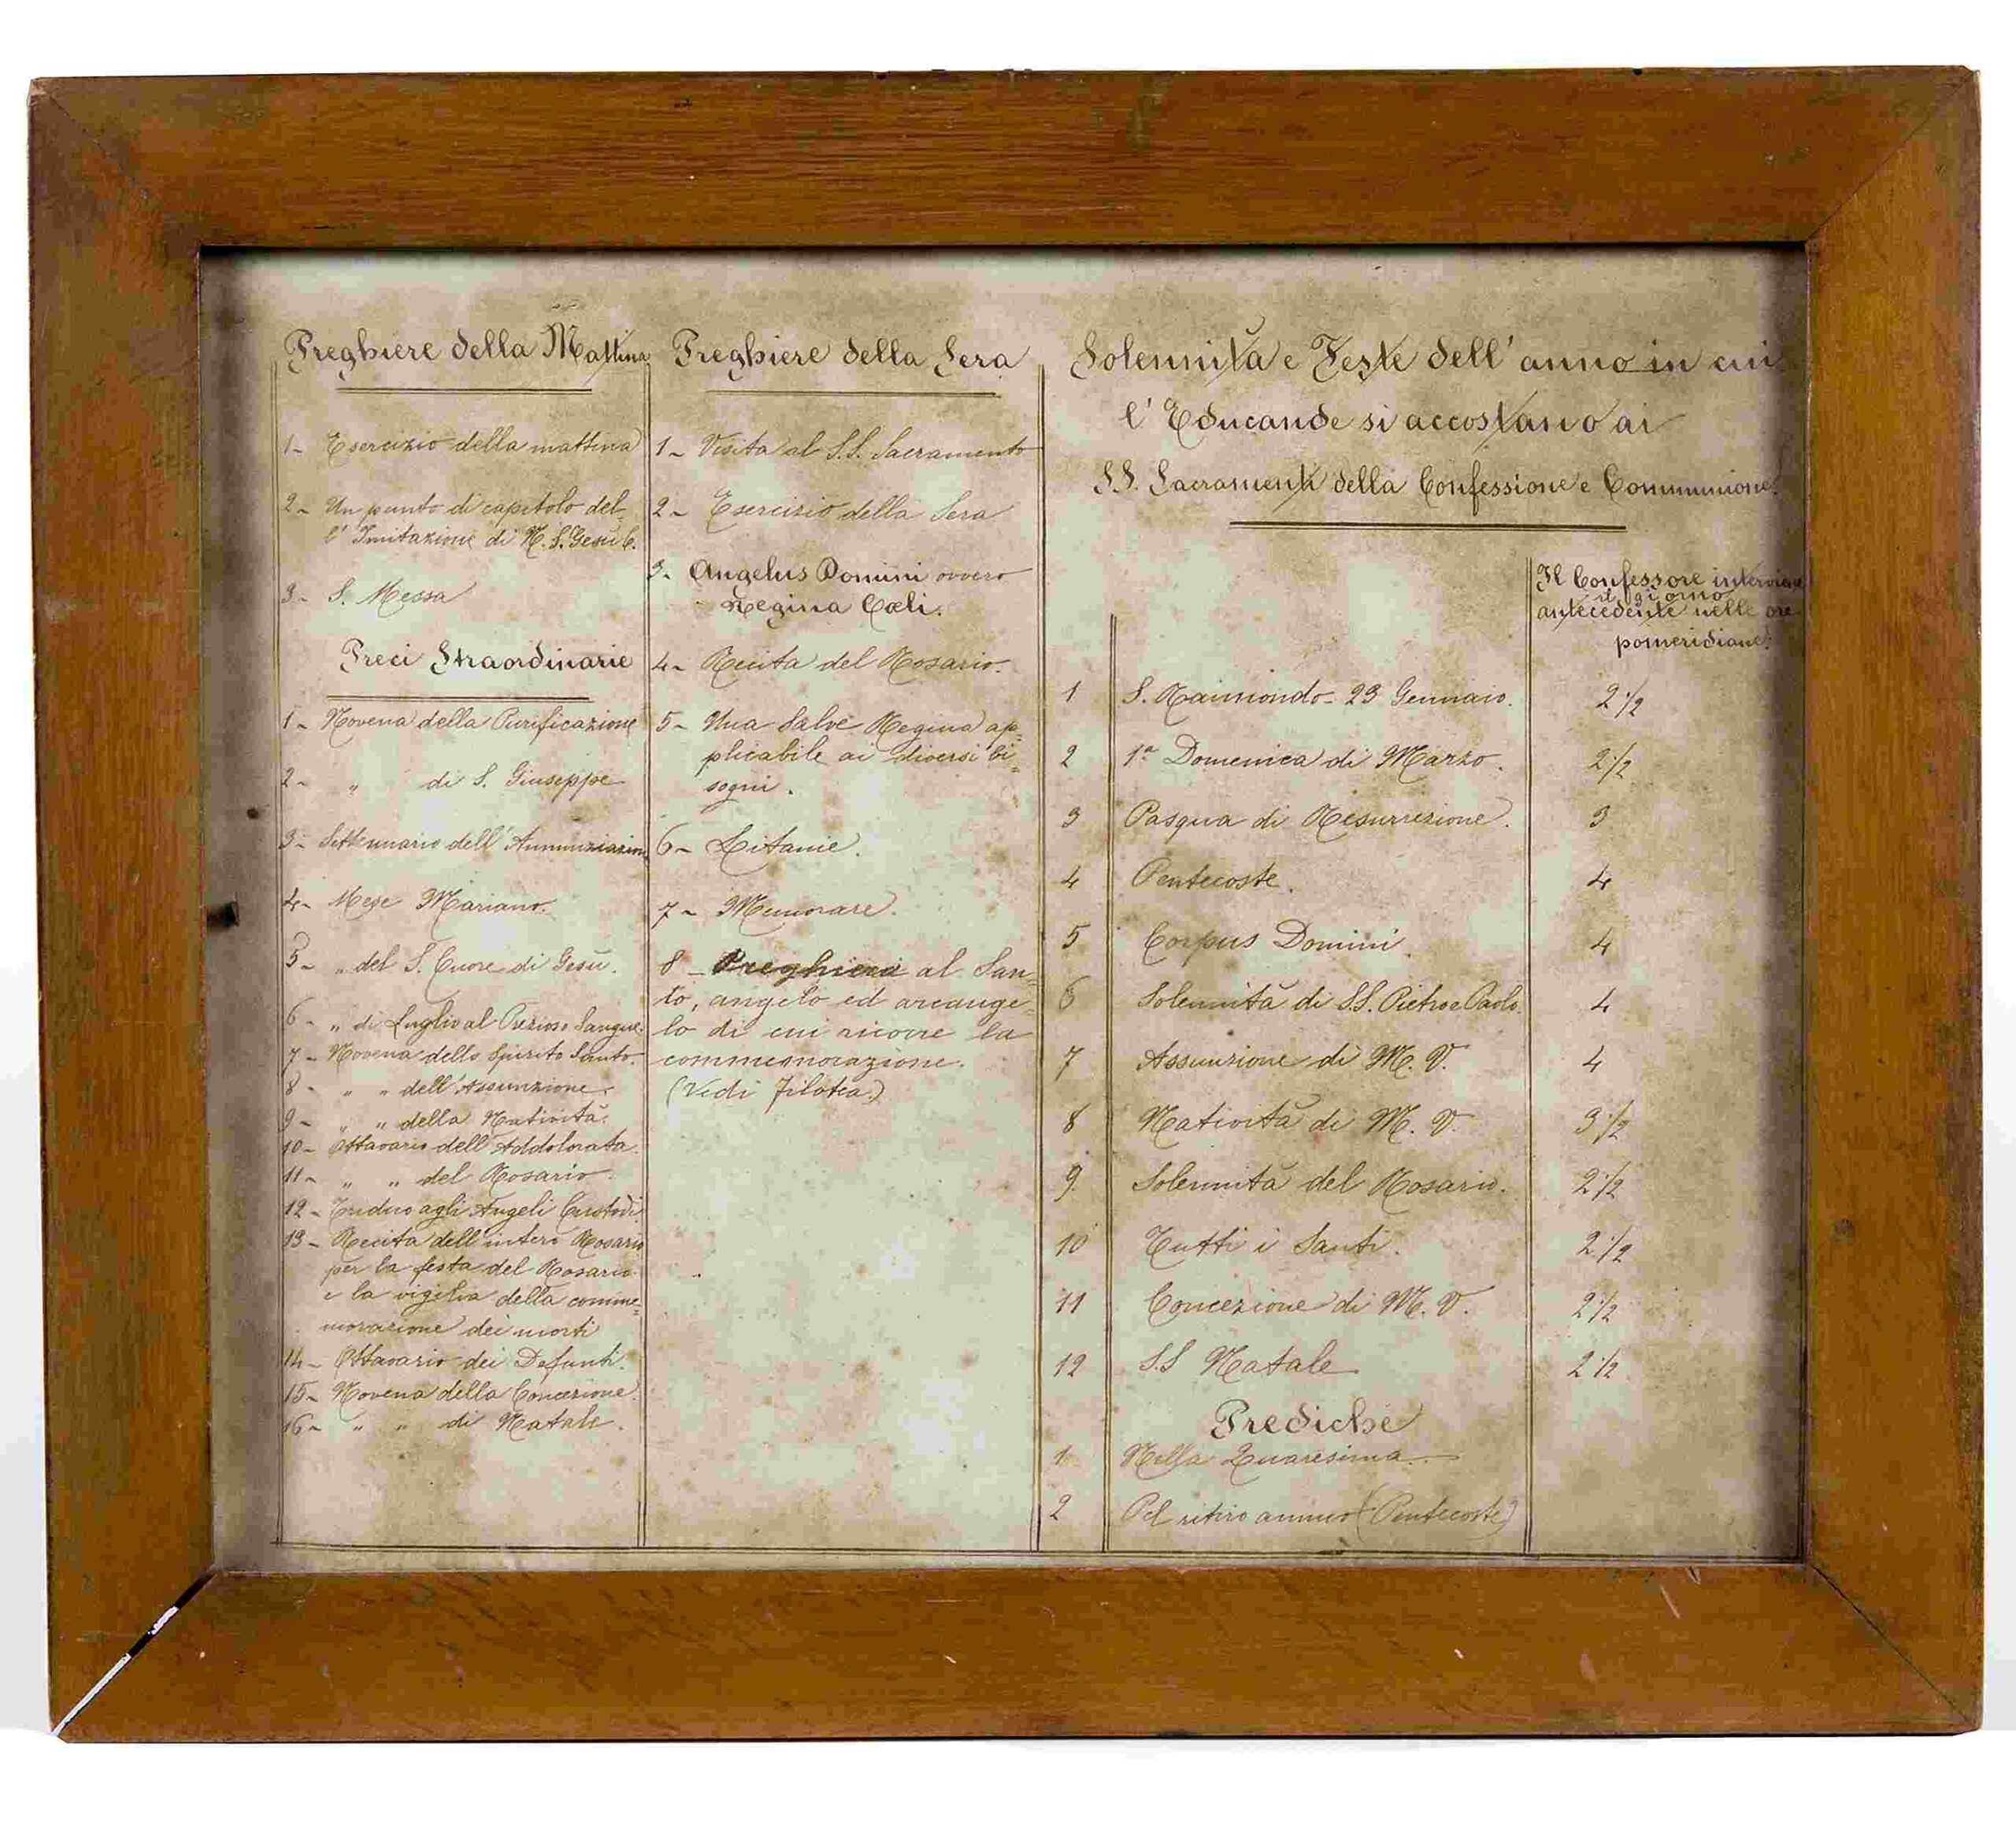 Preghiere della Mattina
1- Esercizio della mattina
2- Un punto di capitolo del-
l'Imitazione di N. S. Gesù C.
3- S. Messa
Preci Straordinarie
1- Novena della Purificazione
2- " di S. Giuseppe
3- Settennario dell'Annunziazion
4- Mese Mariano.
5- " del S. Cuore di Gesù.
6- " di Luglio al Prezioso Sangue
7- Novena dello Spirito Santo.
8- " " dell'Assunzione.
9- " " della Natività.
10- Ottavario dell'Addolorata.
11- " " del Rosario.
12- Triduo agli Angeli Custodi
13- Recita dell'intero Rosario
per la festa del Rosario
e la vigilia della comme=
morazione dei morti
14- Ottavario dei Defunti.
15- Novena della Concezione.
16- " " di Natale.
Preghiere della Sera
1- Visita al S.S. Sacramento
2- Esercizio della Sera
3- Angelus Domini ovvero
Regina Cœli.
4- Recita del Rosario.
5- Una Salve Regina ap=
plicabile ai diversi bi=
sogni.
6- Litanie.
7- Memorare.
8- Preghiera al San=
to, angelo ed arcange=
lo di cui ricorre la
commemorazione.
(Vedi Filotea.)
Solennità e Feste dell'anno in cui
l'Educande si accostano ai
SS. Sacramenti della Confessione e Communione.
Il Confessore interviene
il giorno
antecedente nelle ore
pomeridiane:
1 S. Raimondo - 23 Gennaio. 2 1/2
2 1ª Domenica di Marzo. 2 1/2
3 Pasqua di Resurrezione. 3
4 Pentecoste. 4
5 Corpus Domini. 4
6 Solennità di S.S. Pietro e Paolo. 4
7 Assunzione di M. V. 4
8 Natività di M. V. 3 1/2
9. Solennità del Rosario. 2 1/2
10 Tutti i Santi. 2 1/2
11 Concezione di M. V. 2 1/2
12 S.S Natale 2 1/2
Prediche
1 Nella Quaresima.
2 Pel ritiro annuo (Pentecoste)